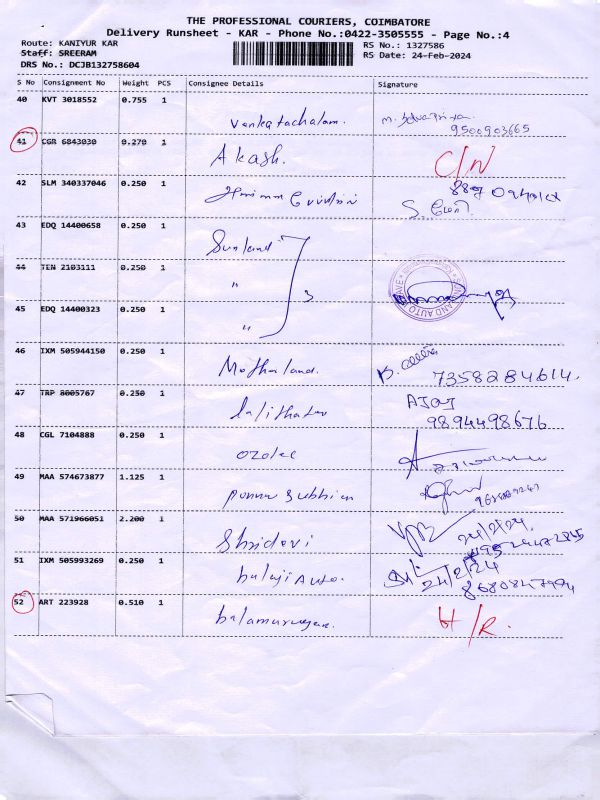 THE PROFESSIONAL COURIERS, COIMBATORE
Delivery Runsheet - KAR - Phone No.:0422-3505555 - Page No.:4
Route: KANIYUR KAR RS No.: 1327586
Staff: SREERAM RS Date: 24-Feb-2024
DRS No.: DCJB132758604
S No Consignment No Weight PCS Consignee Details Signature
40 KVT 3018552 0.755 1 Venkatachalam. 9500903665
41 CGR 6843030 0.270 1 Akash. C/N
42 SLM 340337046 0.250 1
43 EDQ 14400658 0.250 1 Sunland
44 TEN 2103111 0.250 1 "
45 EDQ 14400323 0.250 1 "
46 IXM 505944150 0.250 1 Motherland. 7358284614.
47 TRP 8005767 0.250 1 AJOY
9894498676
48 CGL 7104888 0.250 1 ozotec
49 MAA 574673877 1.125 1 ponnu Subbian
50 MAA 571966051 2.200 1 Shridevi 24/2/24,
51 IXM 505993269 0.250 1 balaji Auto. 24/2/24
52 ART 223928 0.510 1 balamurugan. H/R.